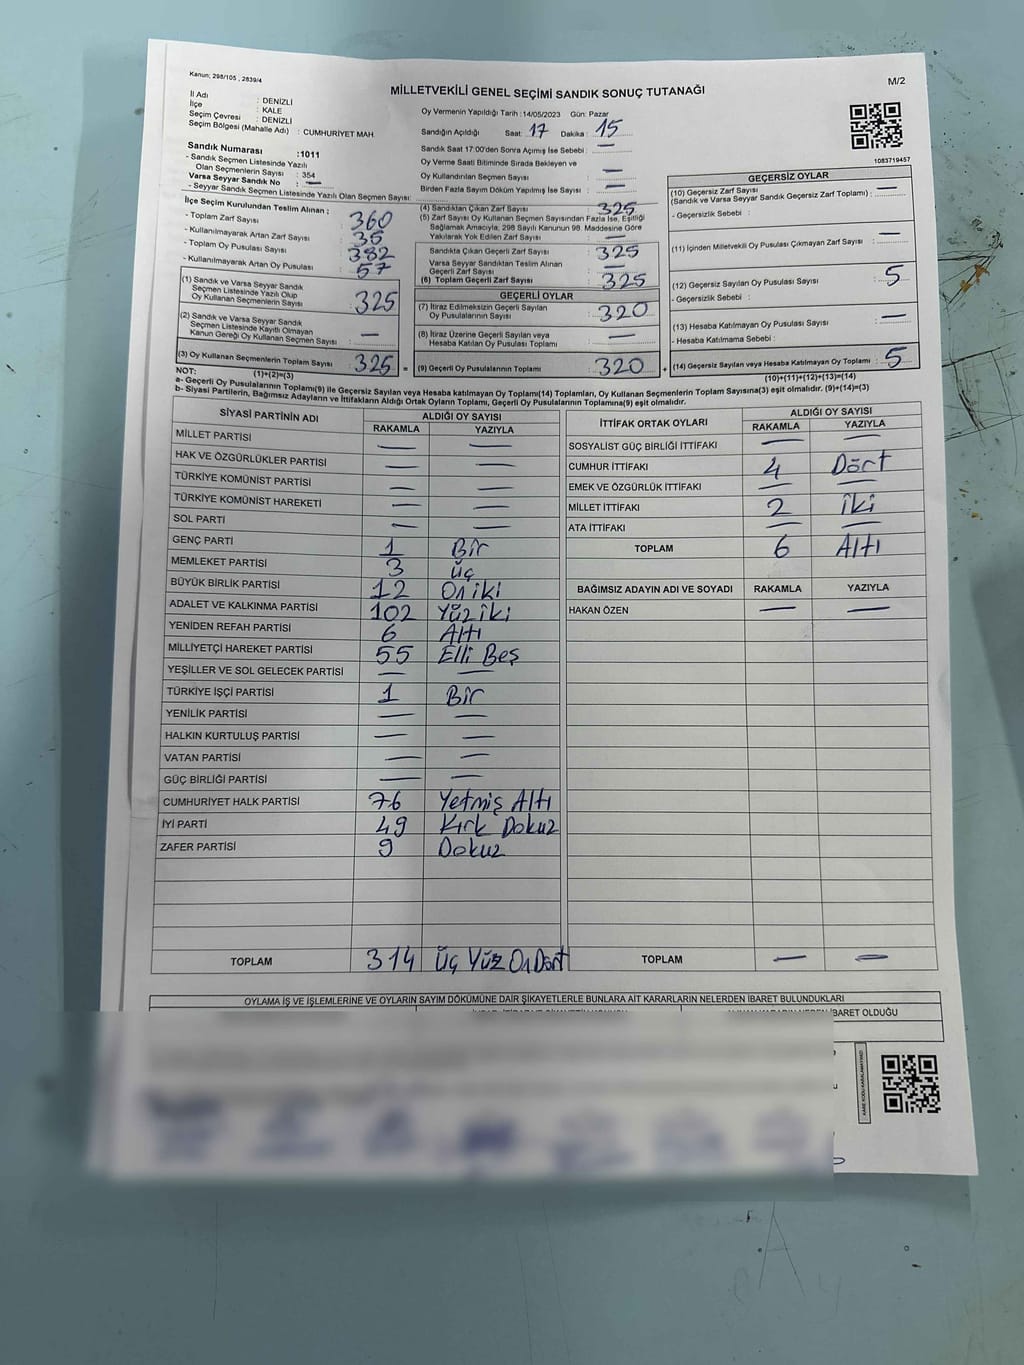 Kanun; 298/105 , 2839/4
M/2
MİLLETVEKİLİ GENEL SEÇİMİ SANDIK SONUÇ TUTANAĞI
İl Adı : DENİZLİ
İlçe : KALE
Seçim Çevresi : DENİZLİ
Seçim Bölgesi (Mahalle Adı) : CUMHURİYET MAH.
Sandık Numarası :1011
- Sandık Seçmen Listesinde Yazılı
Olan Seçmenlerin Sayısı : 354
Varsa Seyyar Sandık No : —
- Seyyar Sandık Seçmen Listesinde Yazılı Olan Seçmen Sayısı:
Oy Vermenin Yapıldığı Tarih :14/05/2023 Gün: Pazar
Sandığın Açıldığı Saat: 17 Dakika : 15
Sandık Saat 17:00'den Sonra Açımış İse Sebebi : —
Oy Verme Saati Bitiminde Sırada Bekleyen ve
Oy Kullandırılan Seçmen Sayısı : —
Birden Fazla Sayım Döküm Yapılmış İse Sayısı : —
1083719457
İlçe Seçim Kurulundan Teslim Alınan ;
- Toplam Zarf Sayısı : 360
- Kullanılmayarak Artan Zarf Sayısı : 35
- Toplam Oy Pusulası Sayısı : 382
- Kullanılmayarak Artan Oy Pusulası : 57
(1) Sandık ve Varsa Seyyar Sandık
Seçmen Listesinde Yazılı Olup
Oy Kullanan Seçmenlerin Sayısı : 325
(2) Sandık ve Varsa Seyyar Sandık
Seçmen Listesinde Kayıtlı Olmayan
Kanun Gereği Oy Kullanan Seçmen Sayısı : —
(3) Oy Kullanan Seçmenlerin Toplam Sayısı : 325 =
(4) Sandıktan Çıkan Zarf Sayısı : 325
(5) Zarf Sayısı Oy Kullanan Seçmen Sayısından Fazla İse, Eşitliği
Sağlamak Amacıyla; 298 Sayılı Kanunun 98. Maddesine Göre
Yakılarak Yok Edilen Zarf Sayısı : —
Sandıkta Çıkan Geçerli Zarf Sayısı : 325
Varsa Seyyar Sandıktan Teslim Alınan
Geçerli Zarf Sayısı : —
(6) Toplam Geçerli Zarf Sayısı : 325
GEÇERLİ OYLAR
(7) İtiraz Edilmeksizin Geçerli Sayılan
Oy Pusulalarının Sayısı : 320
(8) İtiraz Üzerine Geçerli Sayılan veya
Hesaba Katılan Oy Pusulası Toplamı : —
(9) Geçerli Oy Pusulalarının Toplamı : 320 +
GEÇERSİZ OYLAR
(10) Geçersiz Zarf Sayısı
(Sandık ve Varsa Seyyar Sandık Geçersiz Zarf Toplamı) : —
- Geçersizlik Sebebi :
(11) İçinden Milletvekili Oy Pusulası Çıkmayan Zarf Sayısı : —
(12) Geçersiz Sayılan Oy Pusulası Sayısı : 5
- Geçersizlik Sebebi :
(13) Hesaba Katılmayan Oy Pusulası Sayısı : —
- Hesaba Katılmama Sebebi :
(14) Geçersiz Sayılan veya Hesaba Katılmayan Oy Toplamı : 5
NOT: (1)+(2)=(3)
(10)+(11)+(12)+(13)=(14)
a- Geçerli Oy Pusulalarının Toplamı(9) ile Geçersiz Sayılan veya Hesaba katılmayan Oy Toplamı(14) Toplamları, Oy Kullanan Seçmenlerin Toplam Sayısına(3) eşit olmalıdır. (9)+(14)=(3)
b- Siyasi Partilerin, Bağımsız Adayların ve İttifakların Aldığı Ortak Oyların Toplamı, Geçerli Oy Pusulalarının Toplamına(9) eşit olmalıdır.
SİYASİ PARTİNİN ADI ALDIĞI OY SAYISI
RAKAMLA YAZIYLA
MİLLET PARTİSİ — —
HAK VE ÖZGÜRLÜKLER PARTİSİ — —
TÜRKİYE KOMÜNİST PARTİSİ — —
TÜRKİYE KOMÜNİST HAREKETİ — —
SOL PARTİ — —
GENÇ PARTİ 1 Bir
MEMLEKET PARTİSİ 3 Üç
BÜYÜK BİRLİK PARTİSİ 12 On iki
ADALET VE KALKINMA PARTİSİ 102 Yüz iki
YENİDEN REFAH PARTİSİ 6 Altı
MİLLİYETÇİ HAREKET PARTİSİ 55 Elli Beş
YEŞİLLER VE SOL GELECEK PARTİSİ — —
TÜRKİYE İŞÇİ PARTİSİ 1 Bir
YENİLİK PARTİSİ — —
HALKIN KURTULUŞ PARTİSİ — —
VATAN PARTİSİ — —
GÜÇ BİRLİĞİ PARTİSİ — —
CUMHURİYET HALK PARTİSİ 76 Yetmiş Altı
İYİ PARTİ 49 Kırk Dokuz
ZAFER PARTİSİ 9 Dokuz
TOPLAM 314 Üç Yüz On Dört
İTTİFAK ORTAK OYLARI ALDIĞI OY SAYISI
RAKAMLA YAZIYLA
SOSYALİST GÜÇ BİRLİĞİ İTTİFAKI — —
CUMHUR İTTİFAKI 4 Dört
EMEK VE ÖZGÜRLÜK İTTİFAKI — —
MİLLET İTTİFAKI 2 İki
ATA İTTİFAKI — —
TOPLAM 6 Altı
BAĞIMSIZ ADAYIN ADI VE SOYADI RAKAMLA YAZIYLA
HAKAN ÖZEN — —
TOPLAM — —
OYLAMA İŞ VE İŞLEMLERİNE VE OYLARIN SAYIM DÖKÜMÜNE DAİR ŞİKAYETLERLE BUNLARA AİT KARARLARIN NELERDEN İBARET BULUNDUKLARI
İBARET OLDUĞU